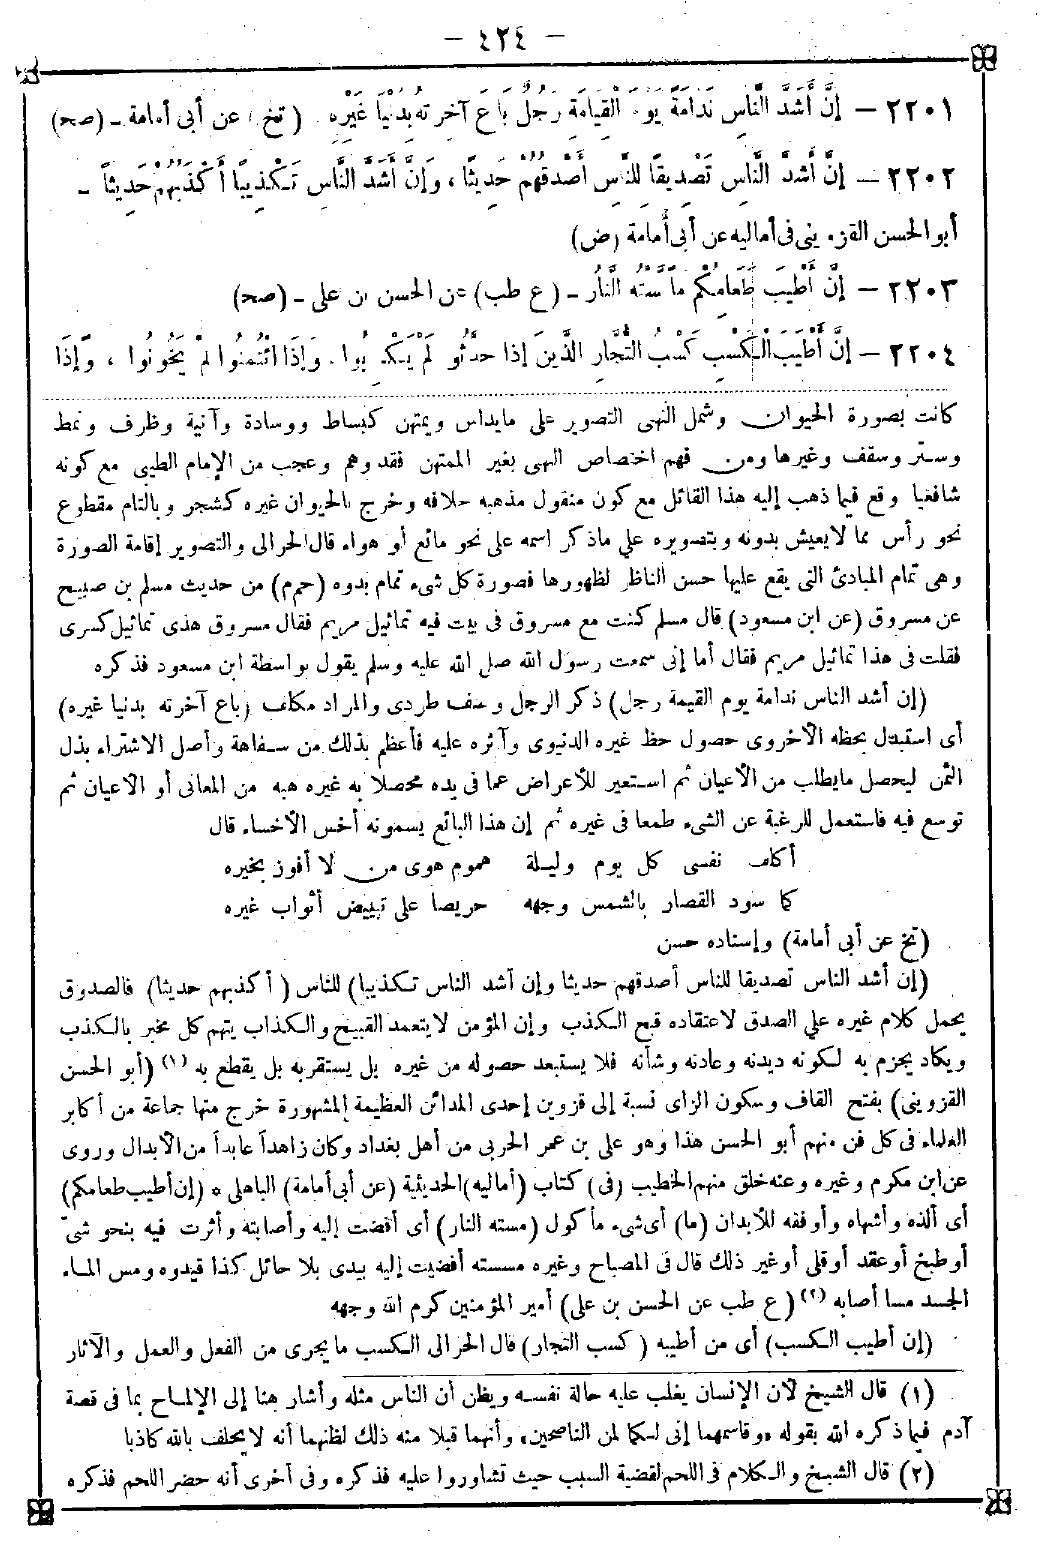 - ٤٢٤ -
٢٢٠١ – إِنَّ أَشَدَّ النَّاسِ نَدَامَةً يَوْمَ الْقِيَامَةِ رَجُلٌ بَاعَ آخِرَتَهُ بِدُنْيَا غَيْرِهِ . ( تخ ) عن أبى أمامة - (صح)
٢٢٠٢ – إِنَّ أَشَدَّ النَّاسِ تَصْدِيقًا لِلنَّاسِ أَصْدَقُهُمْ حَدِيثًا ، وَإِنَّ أَشَدَّ النَّاسِ تَكْذِيبًا أَكْذَبُهُمْ حَدِيثًا -
أبو الحسن القزوينى فى أماليه عن أبى أمامة (ض)
٢٢٠٣ – إِنَّ أَطْيَبَ طَعَامِكُمْ مَا مَسَّتْهُ النَّارُ - (ع طب) عن الحسن بن على - (صح)
٢٢٠٤ – إِنَّ أَطْيَبَ الْكَسْبِ كَسْبُ التُّجَّارِ الَّذِينَ إِذَا حَدَّثُوا لَمْ يَكْذِبُوا . وَإِذَا ائْتُمِنُوا لَمْ يَخُونُوا ، وَإِذَا
كانت بصورة الحيوان وشمل النهى التصوير على مايداس ويمتهن كبساط ووسادة وآنية وظرف ونمط
وستر وسقف وغيرها ومن فهم اختصاص النهى بغير الممتهن فقد وهم وعجب من الإمام الطيبى مع كونه
شافعيا وقع فيما ذهب إليه هذا القائل مع كون منقول مذهبه خلافه وخرج بالحيوان غيره كشجر وبالتام مقطوع
نحو رأس مما لايعيش بدونه وبتصويره على ماذكر اسمه على نحو مائع أو هواء قال الحرالى والتصوير إقامة الصورة
وهى تمام المبادئ التى يقع عليها حسن الناظر لظهورها فصورة كل شىء تمام بدوه (حم م) من حديث مسلم بن صبيح
عن مسروق (عن ابن مسعود) قال مسلم كنت مع مسروق فى بيت فيه تماثيل مريم فقال مسروق هذى تماثيل كسرى
فقلت فى هذا تماثيل مريم فقال أما إنى سمعت رسول الله صلى الله عليه وسلم يقول بواسطة ابن مسعود فذكره
(إن أشد الناس ندامة يوم القيمة رجل) ذكر الرجل وصف طردى والمراد مكلف (باع آخرته بدنيا غيره)
أى استبدل بحظه الأخروى حصول حظ غيره الدنيوى وآثره عليه فأعظم بذلك من سفاهة وأصل الاشتراء بذل
الثمن ليحصل مايطلب من الأعيان ثم استعير للأعراض عما فى يده محصلا به غيره هبه من المعانى أو الأعيان ثم
توسع فيه فاستعمل للرغبة عن الشىء طمعا فى غيره ثم إن هذا البائع يسمونه أخس الأخساء قال
أكلف نفسى كل يوم وليلة هموم هوى من لا أفوز بخيره
كما سود القصار بالشمس وجهه حريصا على تبييض أثواب غيره
(تخ عن أبى أمامة) وإسناده حسن
(إن أشد الناس تصديقا للناس أصدقهم حديثا وإن أشد الناس تكذيبا) للناس (أكذبهم حديثا) فالصدوق
يحمل كلام غيره على الصدق لاعتقاده قبح الكذب وإن المؤمن لايتعمد القبيح والكذاب يتهم كل مخبر بالكذب
ويكاد يجزم به لكونه ديدنه وعادته وشأنه فلا يستبعد حصوله من غيره بل يستقر به بل يقطع به (١) (أبو الحسن
القزوينى) بفتح القاف وسكون الزاى نسبة إلى قزوين إحدى المدائن العظيمة المشهورة خرج منها جماعة من أكابر
العلماء فى كل فن منهم أبو الحسن هذا وهو على بن عمر الحربى من أهل بغداد وكان زاهداً عابداً من الأبدال وروى
عن ابن مكرم وغيره وعنه خلق منهم الخطيب (فى) كتاب (أماليه) الحديثية (عن أبى أمامة) الباهلى * (إن أطيب طعامكم)
أى ألذه وأشهاه وأوفقه للأبدان (ما) أى شىء مأكول (مسته النار) أى أفضت إليه وأصابته وأثرت فيه بنحو شىّ
أو طبخ أو عقد أو قلى أو غير ذلك قال فى المصباح وغيره مسسته أفضيت إليه بيدى بلا حائل كذا قيدوه ومس الماء
الجسد مسا أصابه (٢) (ع طب عن الحسن بن على) أمير المؤمنين كرم الله وجهه
(إن أطيب الكسب) أى من أطيبه (كسب التجار) قال الحرالى الكسب مايجرى من الفعل والعمل والآثار
(١) قال الشيخ لأن الإنسان يغلب عليه حالة نفسه ويظن أن الناس مثله وأشار هنا إلى الإلماح بما فى قصة
آدم فيما ذكره الله بقوله «وقاسمهما إنى لكما لمن الناصحين» وأنهما قبلا منه ذلك لظنهما أنه لا يحلف بالله كاذبا
(٢) قال الشيخ والكلام فى اللحم لقضية السبب حيث تشاوروا عليه فذكره وفى أخرى أنه حضر اللحم فذكره